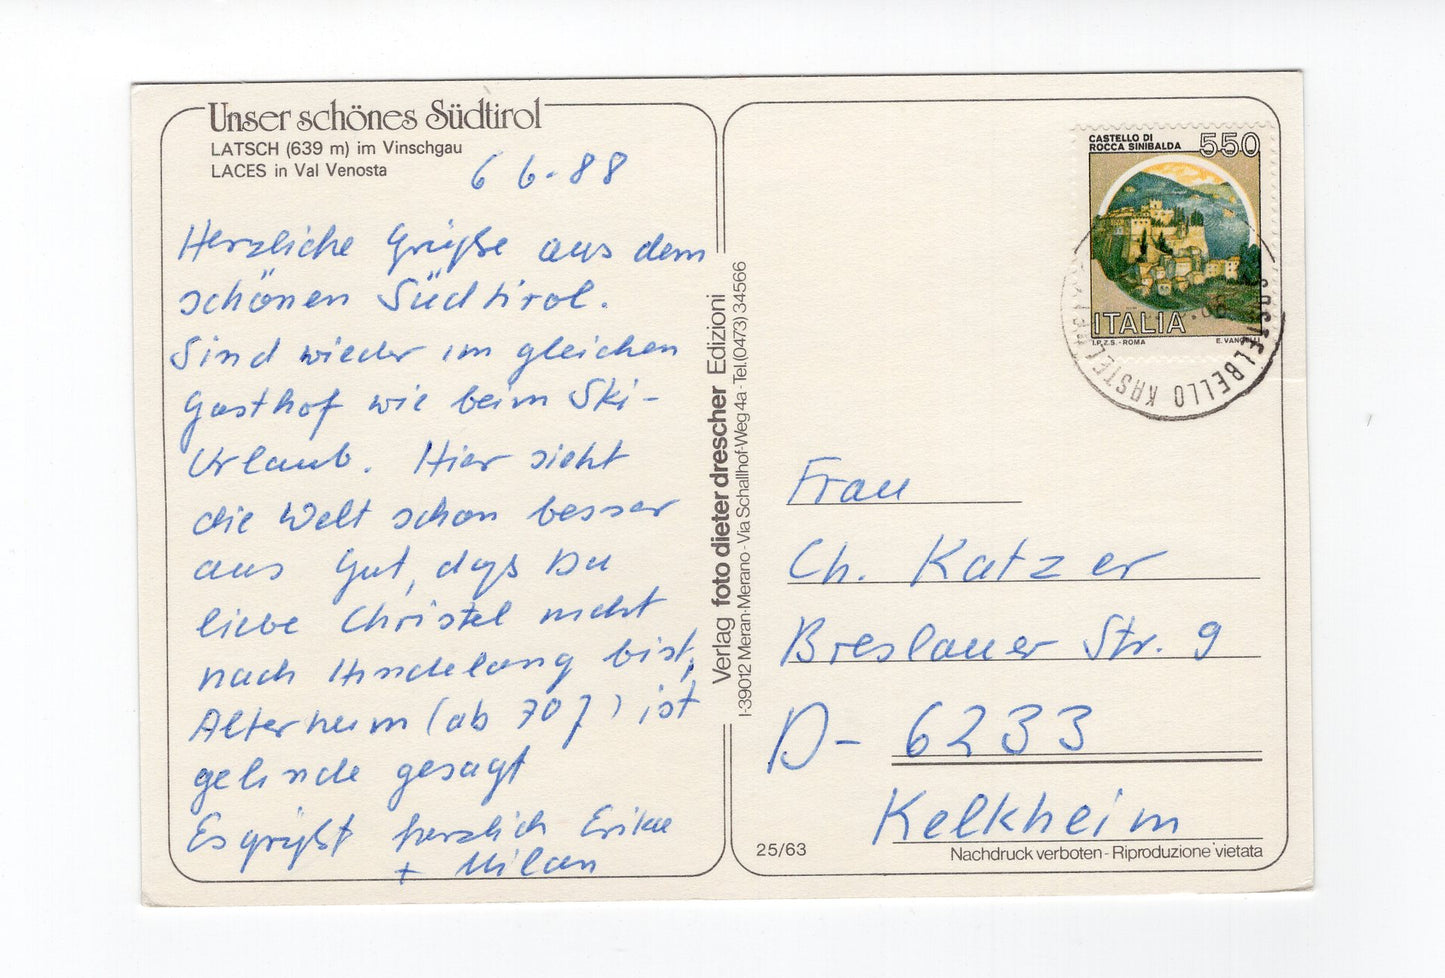 Unser schönes Südtirol
LATSCH (639 m) im Vinschgau
LACES in Val Venosta
6 6.88
Herzliche Grüße aus dem
schönen Südtirol.
Sind wieder im gleichen
Gasthof wie beim Ski-
Urlaub. Hier sieht
die Welt schon besser
aus Gut, daß Du
liebe Christel nicht
nach Hindelang bist,
Altersheim (ab 70 J) ist
gelinde gesagt
Es grüßt herzlich Erika
+ Milan
Verlag foto dieter drescher Edizioni
I-39012 Meran-Merano - Via Schallhof-Weg 4a - Tel. (0473) 34566
CASTELLO DI
ROCCA SINIBALDA
550
ITALIA
I.P.Z.S. - ROMA
CASTELBELLO KASTELBELL
Frau
Ch. Katzer
Breslauer Str. 9
D- 6233
Kelkheim
25/63
Nachdruck verboten - Riproduzione vietata